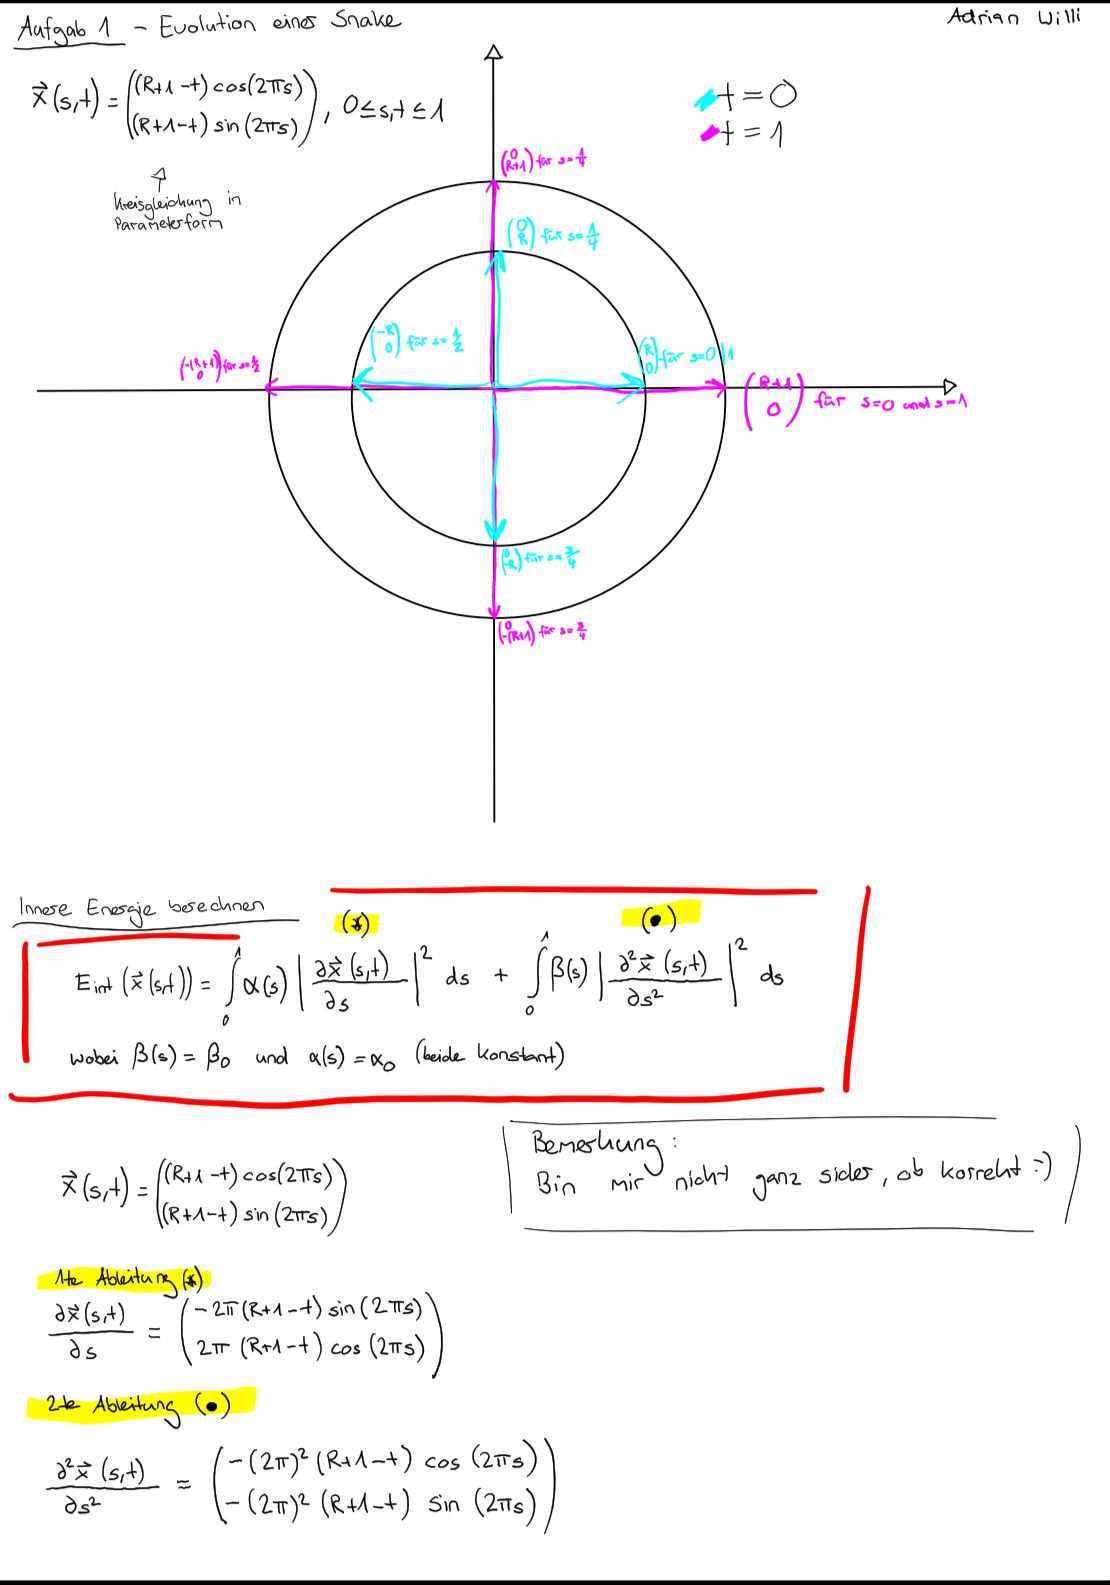 Aufgab 1 - Evolution einer Snake
Adrian Willi
x⃗(s,t) = ((R+1-t) cos(2πs) (R+1-t) sin(2πs)), 0≤s,t≤1
Kreisgleichung in
Parameterform
t=0
t=1
(0 R+1) für s=1/4
(0 R) für s=1/4
(-R 0) für s=1/2
(R 0) für s=0|1
(-(R+1) 0) für s=1/2
(R+1 0) für s=0 und s=1
(0 -R) für s=3/4
(0 -(R+1)) für s=3/4
Innere Energie berechnen
(*) (•)
Eint (x⃗(s,t)) = ∫₀¹ α(s) |∂x⃗(s,t)/∂s|² ds + ∫₀¹ β(s) |∂²x⃗(s,t)/∂s²|² ds
wobei β(s) = β₀ und α(s) = α₀ (beide konstant)
Bemerkung:
Bin mir nicht ganz sicher, ob korrekt :-)
x⃗(s,t) = ((R+1-t) cos(2πs) (R+1-t) sin(2πs))
1te Ableitung (*)
∂x⃗(s,t)/∂s = (-2π(R+1-t) sin(2πs) 2π(R+1-t) cos(2πs))
2te Ableitung (•)
∂²x⃗(s,t)/∂s² = (-(2π)²(R+1-t) cos(2πs) -(2π)²(R+1-t) sin(2πs))